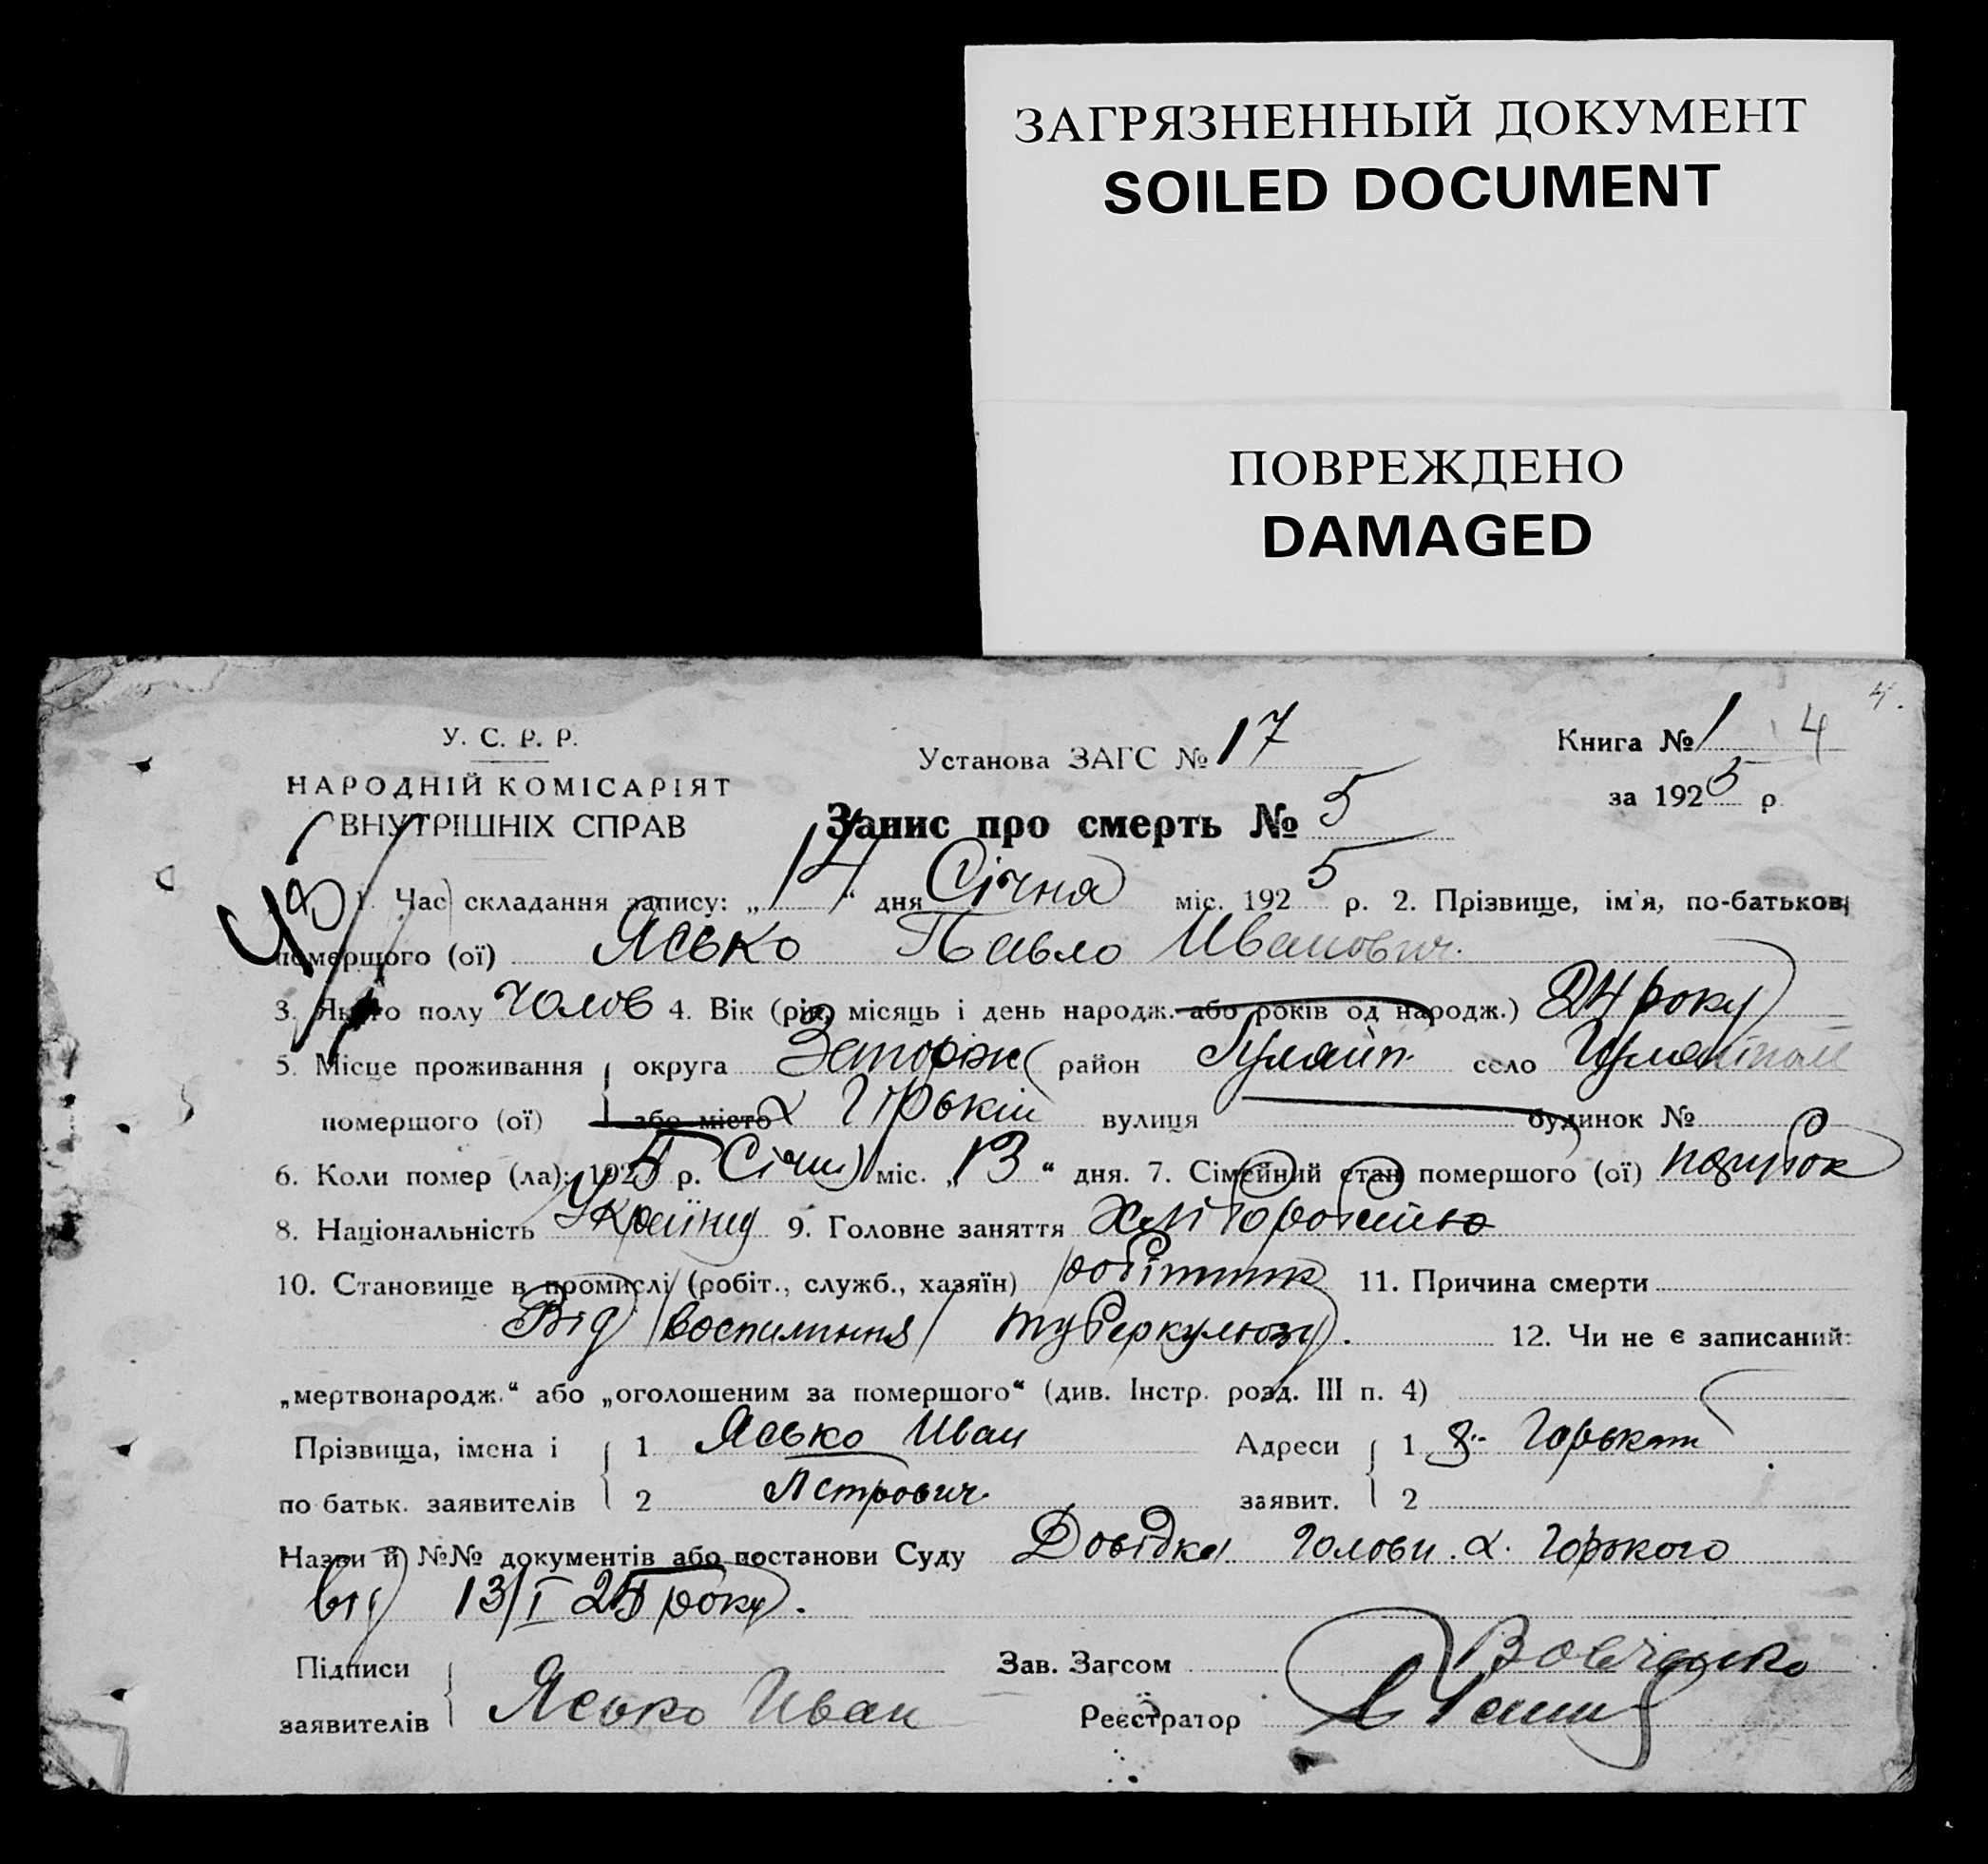 ЗАГРЯЗНЕННЫЙ ДОКУМЕНТ
SOILED DOCUMENT
ПОВРЕЖДЕНО
DAMAGED
4.
У. С. Р. Р.
НАРОДНІЙ КОМІСАРІЯТ
ВНУТРІШНІХ СПРАВ
Установа ЗАГС № 17
Книга № 1 4
за 1925 р.
Запис про смерть № 5
1. Час складання запису: „14“ дня Січня міс. 1925 р. 2. Прізвище, ім'я, по-батькові
помершого (ої) Ясько Павло Иванович
3. Якого полу Чолов 4. Вік (рік, місяць і день народж. або років од народж.) 24 року
5. Місце проживання округа Запоріж район Гуляйп. село Гуляйполе
помершого (ої) або місто х Гірькій вулиця будинок №
6. Коли помер (ла): 1925 р. Січня міс. „13“ дня. 7. Сімейний стан помершого (ої) парубок
8. Національність Україн 9. Головне заняття
10. Становище в промислі (робіт., служб., хазяїн) робітник 11. Причина смерти
Від воспилиння туберкульозу. 12. Чи не є записаний:
„мертвонародж.“ або „оголошеним за помершого“ (див. Інстр. розд. III п. 4)
Прізвища, імена і 1 Ясько Иван Адреси 1 Горький
по батьк. заявителів 2 Петрович заявит. 2
Назви й №№ документів або постанови Суду Довідка Голови х. Горького
від 13/I 25 року.
Підписи Зав. Загсом Вовченко
заявителів Ясько Иван Реєстратор